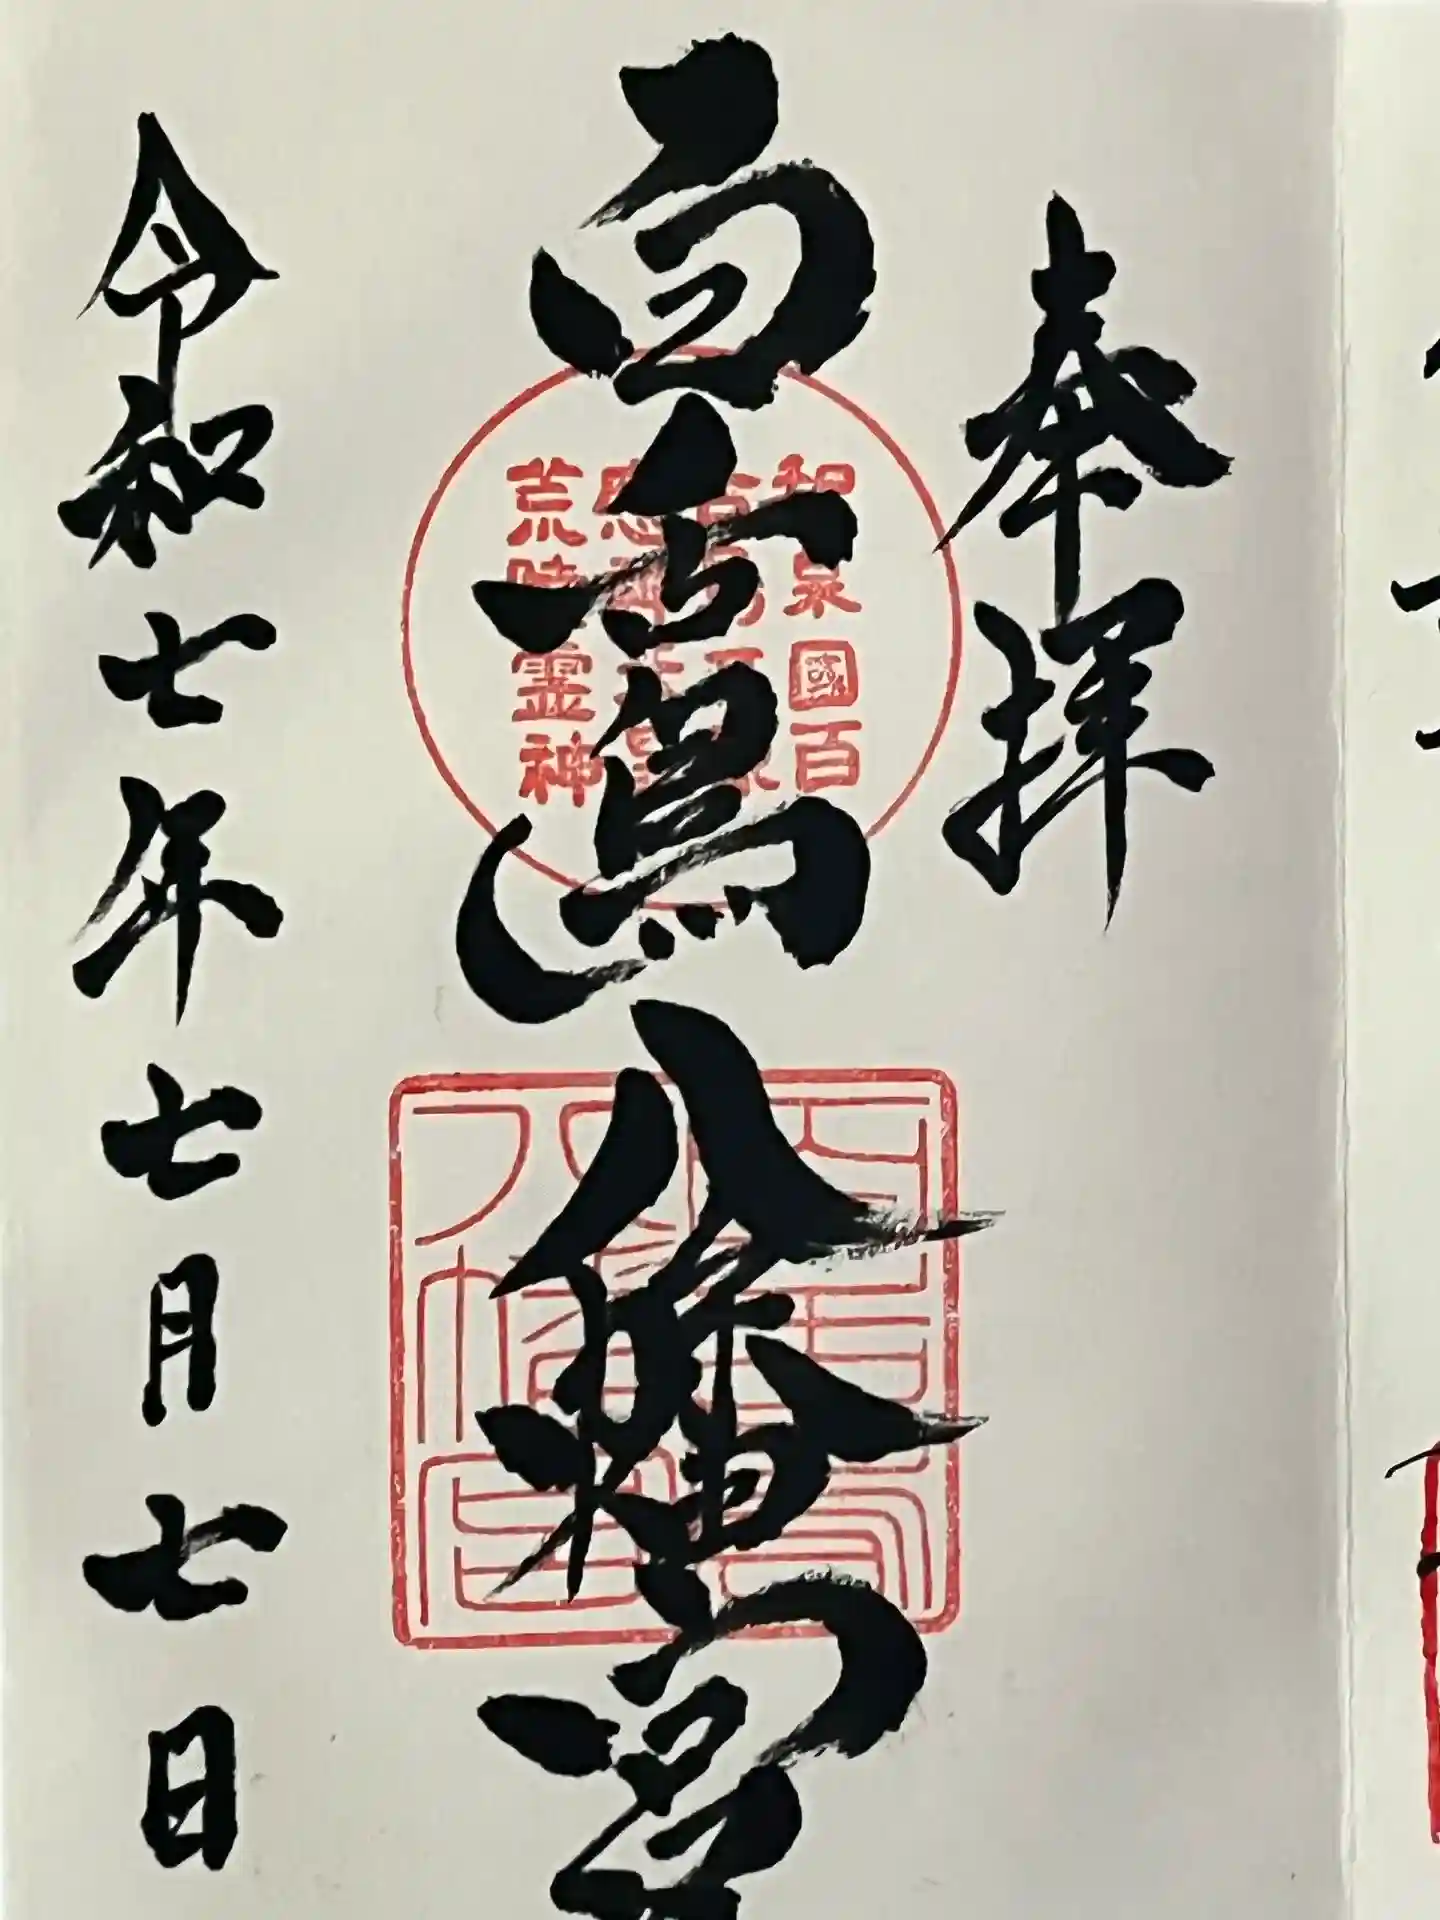 奉拝
百舌鳥八幡宮
令和七年七月七日
和泉國百
荒
霊神